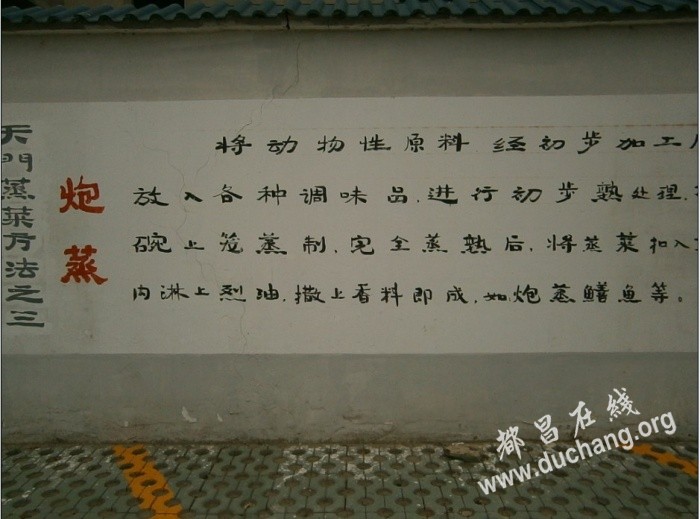 天門蒸菜方法之三
炮蒸
将动物性原料经初步加工
放入各种调味品,进行初步熟处理,
碗上笼蒸制,完全蒸熟后,将蒸菜扣入
内淋上烈油,撒上香料即成,如炮蒸鳝鱼等。
都昌在线
www.duchang.org